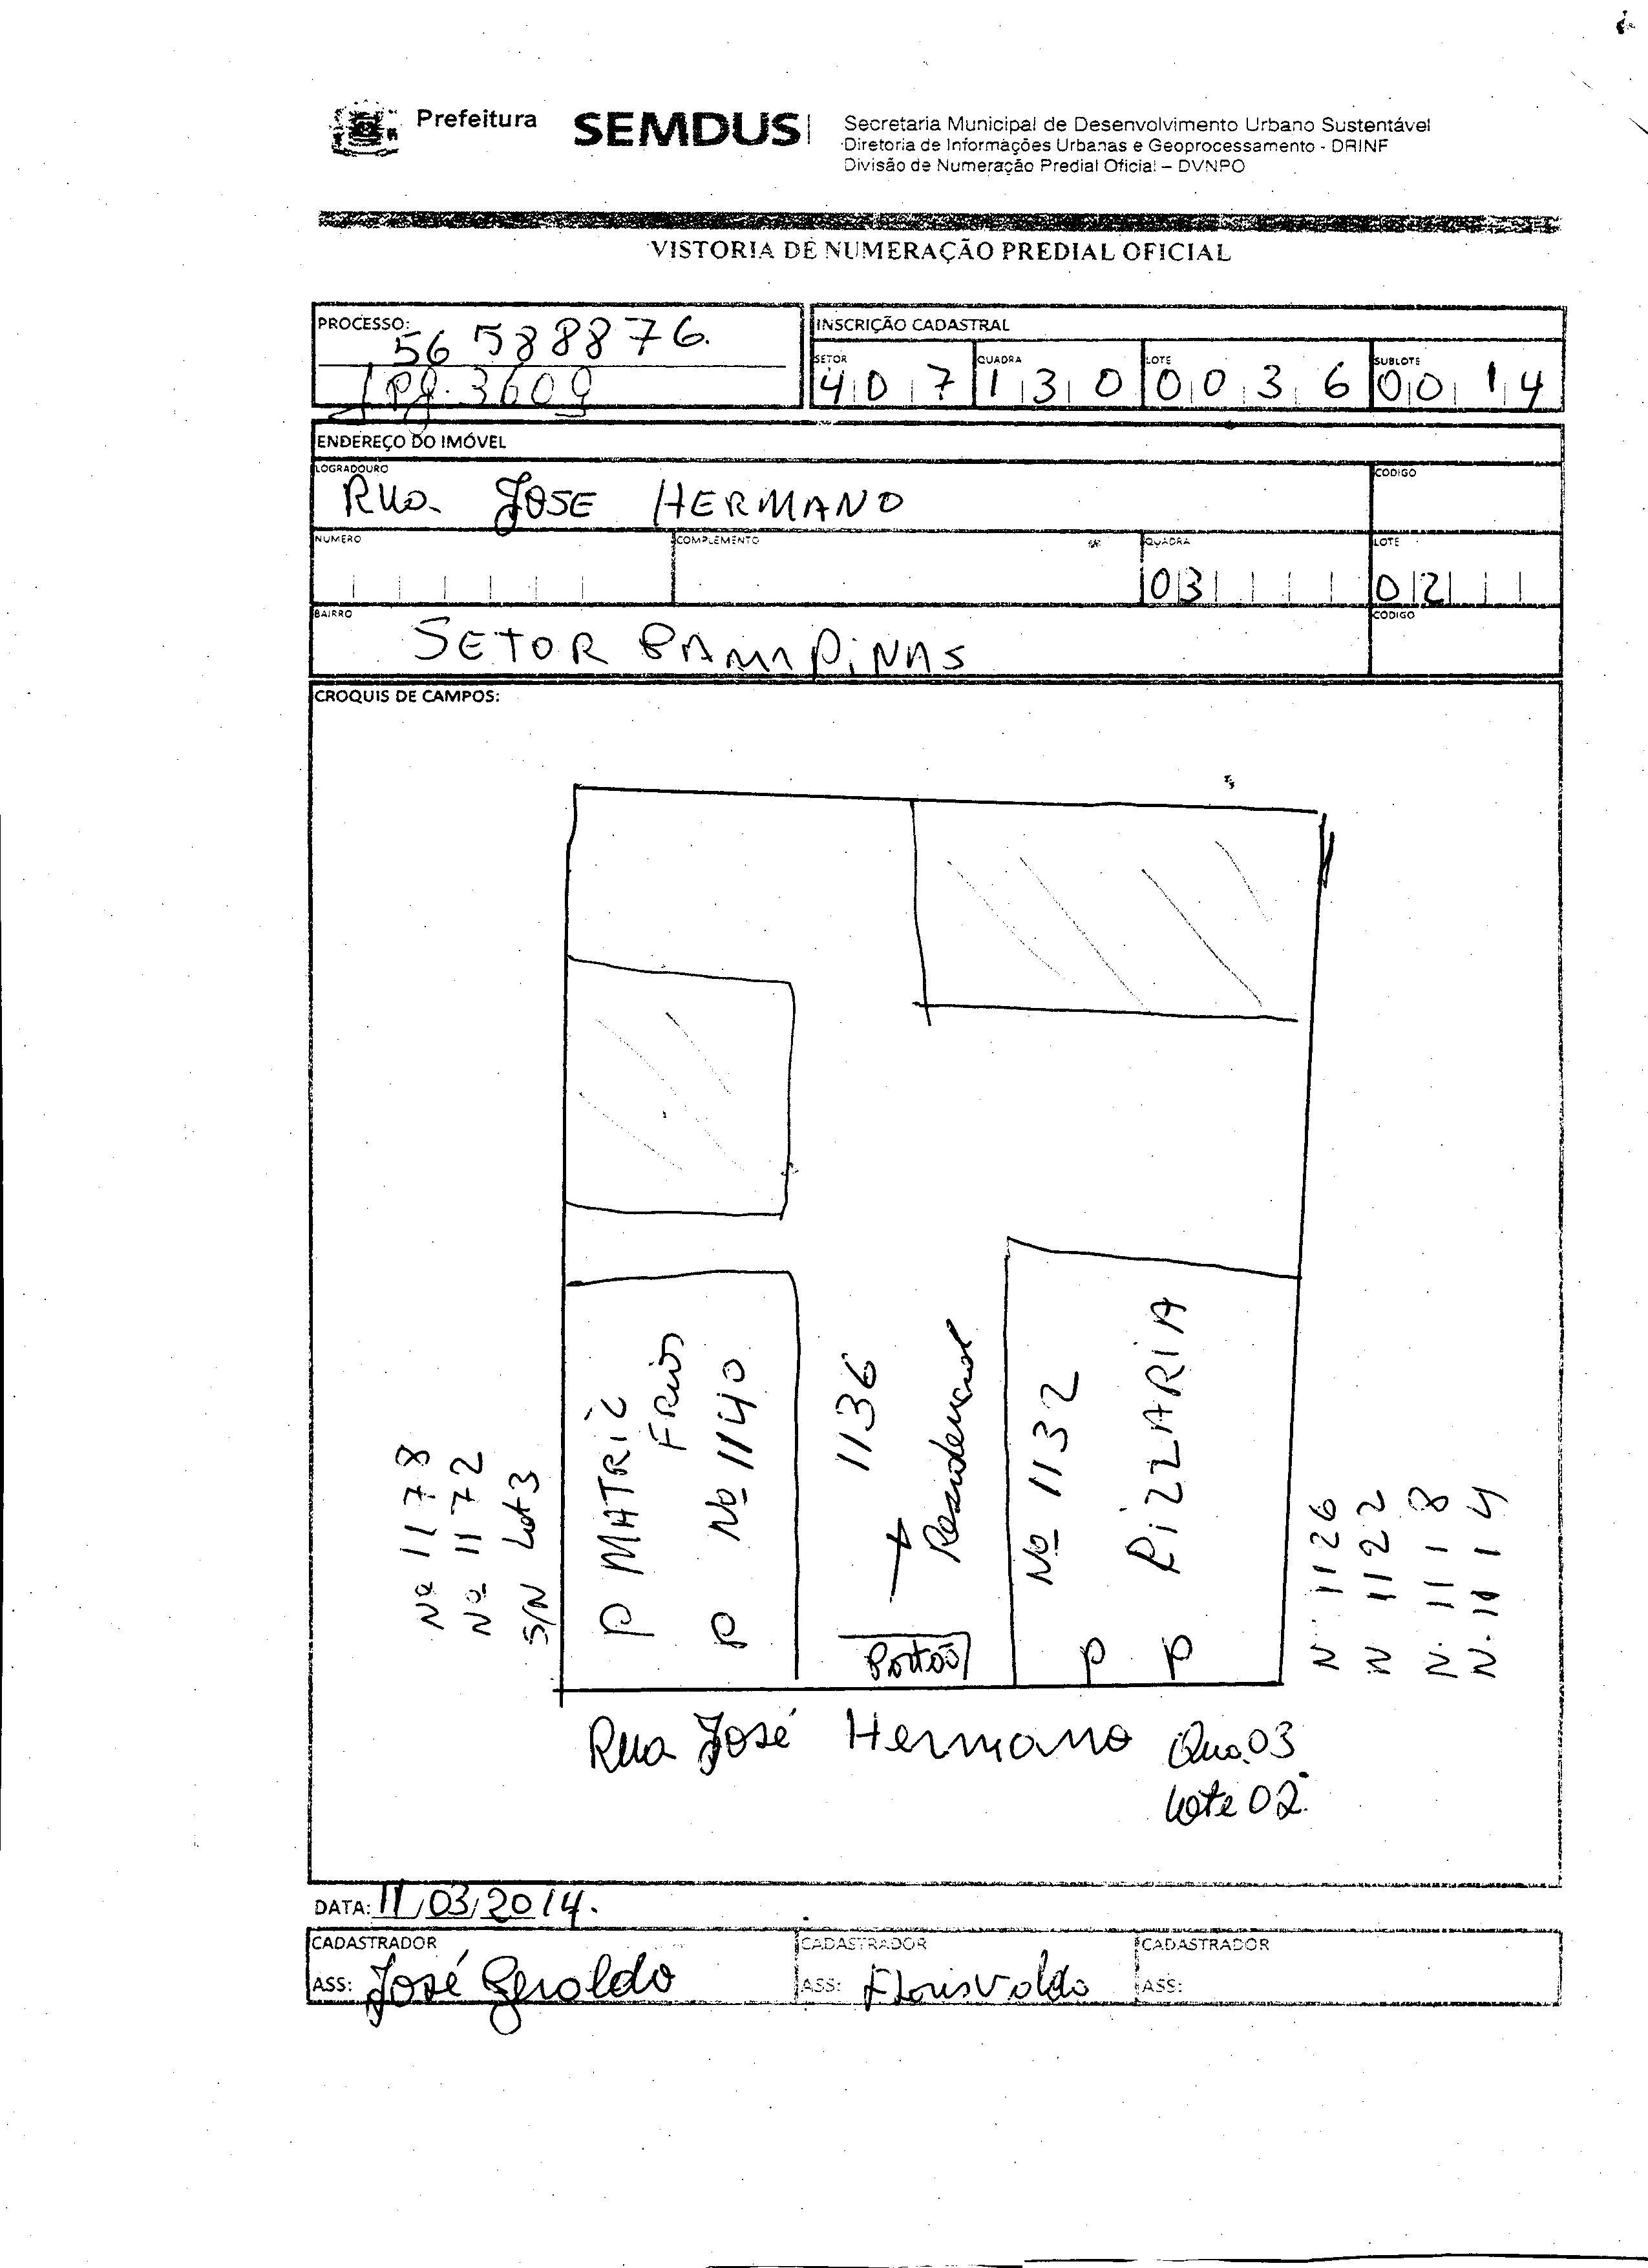 Prefeitura
SEMDUS
Secretaria Municipal de Desenvolvimento Urbano Sustentável
Diretoria de Informações Urbanas e Geoprocessamento - DRINF
Divisão de Numeração Predial Oficial – DVNPO
VISTORIA DE NUMERAÇÃO PREDIAL OFICIAL
PROCESSO: 56588876.
3609
INSCRIÇÃO CADASTRAL
SETOR QUADRA LOTE SUBLOTE
407 130 0036 0014
ENDEREÇO DO IMÓVEL
LOGRADOURO CODIGO
Rua JOSE HERMANO
NUMERO COMPLEMENTO QUADRA LOTE
03 02
BAIRRO CODIGO
SETOR CAMPINAS
CROQUIS DE CAMPOS:
Nº 1178
Nº 1172
S/N Lot 3
P MATRIZ
FRIOS
P Nº 1140
1136
Residencial
Portão
Nº 1132
P
P PIZZARIA
N 1126
N 1122
N. 1118
N. 1114
Rua José Hermano Qua.03
Lote 02.
DATA: 11/03/2014.
CADASTRADOR CADASTRADOR CADASTRADOR
ASS: José Geraldo ASS: Florisvaldo ASS: